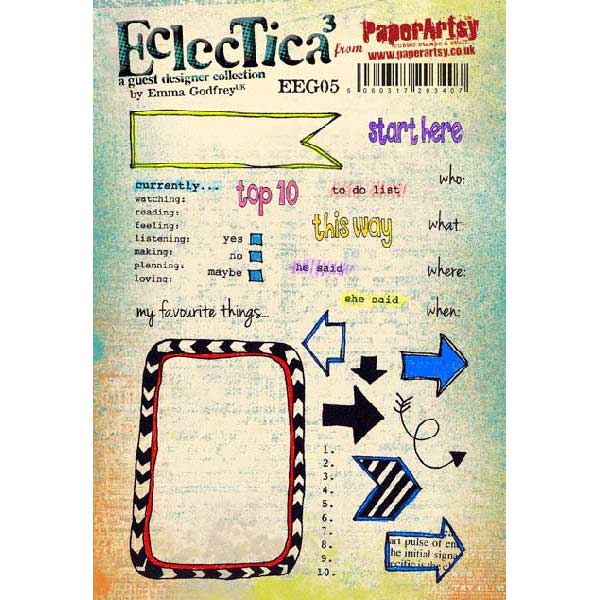 EclecTica3
from
PaperArtsy
rubber stamps & stuff
www.paperartsy.co.uk
a guest designer collection
by Emma GodfreyUK
EEG05
5 060317 293407
start here
currently...
watching:
reading:
feeling:
listening:
making:
planning:
loving:
top 10
to do list
who:
this way
what:
yes
no
maybe
he said
where:
she said
when:
my favourite things...
1.
2.
3.
4.
5.
6.
7.
8.
9.
10.
art pulse of en
he initial signa
ecific is the c